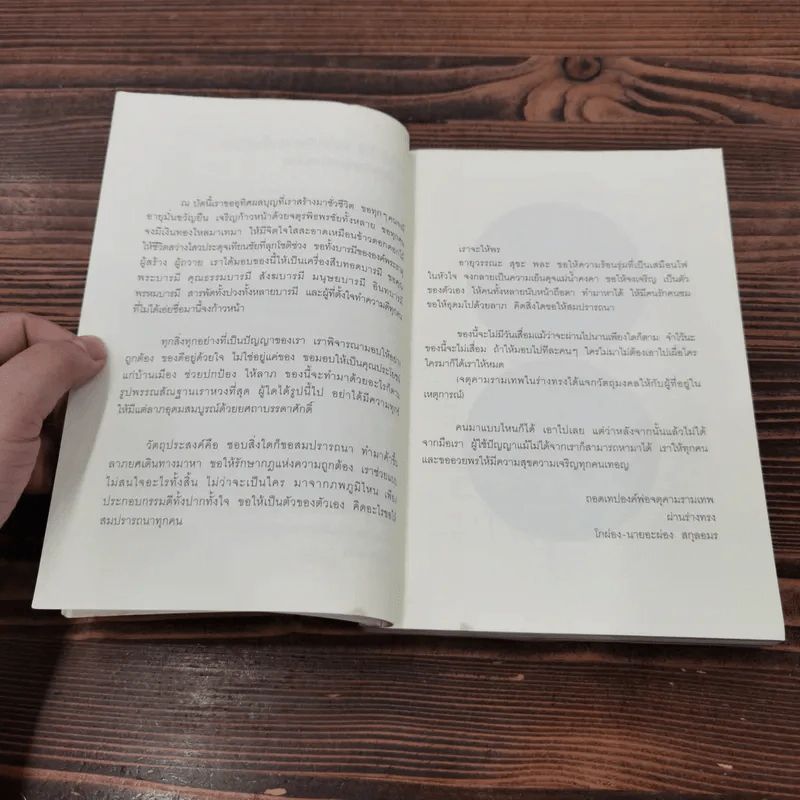 ณ บัดนี้เราขออุทิศผลบุญที่เราสร้างมาชั่วชีวิต ขอทุกๆคนจงมี
อายุมั่นขวัญยืน เจริญก้าวหน้าด้วยจตุรพิธพรชัยทั้งหลาย ขอทุกคน
จงมีเงินทองไหลมาเทมา ให้มีจิตใจใสสะอาดเหมือนข้าวดอกดอกไม้
ให้ชีวิตสว่างไสวประดุจเทียนชัยที่ลุกโชติช่วง ขอทั้งบารมีขององค์พระธาตุ
ผู้สร้าง ผู้ถวาย เราได้มอบของนี้ให้เป็นเครื่องสืบทอดบารมี ขอหมื่น
พระบารมี คุณธรรมบารมี สังฆบารมี มนุษยบารมี อินทบารมี
พรหมบารมี สารพัดทั้งปวงทั้งหลายบารมี และผู้ที่ตั้งใจทำความดีทุกคน
ที่ไม่ได้เอ่ยชื่อมานี้จงก้าวหน้า
ทุกสิ่งทุกอย่างที่เป็นปัญญาของเรา เราพิจารณามอบให้อย่าง
ถูกต้อง ของดีอยู่ด้วยใจ ไม่ใช่อยู่แค่ของ ขอมอบให้เป็นคุณประโยชน์
แก่บ้านเมือง ช่วยปกป้อง ให้ลาภ ของนี้จะทำมาด้วยอะไรก็ตาม
รูปพรรณสัณฐานเราหวงที่สุด ผู้ใดได้รูปนี้ไป อย่าได้มีความทุกข์
ให้มีแต่ลาภอุดมสมบูรณ์ด้วยยศถาบรรดาศักดิ์
วัตถุประสงค์คือ ชอบสิ่งใดก็ขอสมปรารถนา ทำมาค้าขึ้น
ลาภยศเดินทางมาหา ขอให้รักษากฎแห่งความถูกต้อง เราช่วย
ไม่สนใจอะไรทั้งสิ้น ไม่ว่าจะเป็นใคร มาจากภพภูมิไหน เพียง
ประกอบกรรมดีทั้งปากทั้งใจ ขอให้เป็นตัวของตัวเอง คิดอะไรขอให้
สมปรารถนาทุกคน
เราจะให้พร
อายุวรรณะ สุขะ พละ ขอให้ความร้อนรุ่มที่เป็นเสมือนไฟ
ในหัวใจ จงกลายเป็นความเย็นดุจแม่น้ำคงคา ขอให้จงเจริญ เป็นตัว
ของตัวเอง ให้คนทั้งหลายนับหน้าถือตา ทำมาหาได้ ให้มีคนรักคนชม
ขอให้อุดมไปด้วยลาภ คิดสิ่งใดขอให้สมปรารถนา
ของนี้จะไม่มีวันเสื่อมแม้ว่าจะผ่านไปนานเพียงใดก็ตาม จำไว้นะ
ของนี้จะไม่เสื่อม ถ้าให้มอบไปทีละคนๆ ใครไม่มาไม่ต้องเอาไปเผื่อใคร
ใครมาก็ได้เราให้หมด
(จตุคามรามเทพในร่างทรงได้แจกวัตถุมงคลให้กับผู้ที่อยู่ใน
เหตุการณ์)
คนมาแบบไหนก็ได้ เอาไปเลย แต่ว่าหลังจากนั้นแล้วไม่ได้
จากมือเรา ผู้ใช้ปัญญาแม้ไม่ได้จากเราก็สามารถหามาได้ เราให้ทุกคน
และขออวยพรให้มีความสุขความเจริญทุกคนเทอญ
ถอดเทปองค์พ่อจตุคามรามเทพ
ผ่านร่างทรง
โกผ่อง-นายอะผ่อง สกุลอมร